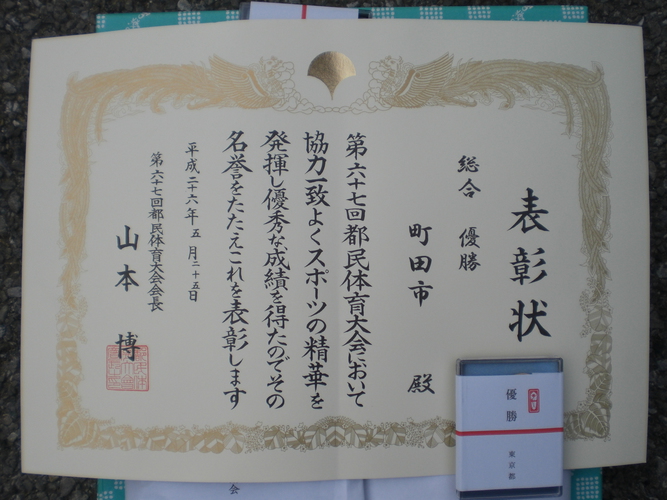 表彰状
総合 優勝
町田市 殿
第六十七回都民体育大会において
協力一致よくスポーツの精華を
発揮し優秀な成績を得たのでその
名誉をたたえこれを表彰します
平成二十六年五月二十五日
第六十七回都民体育大会会長
山本 博
優勝
東京都
会